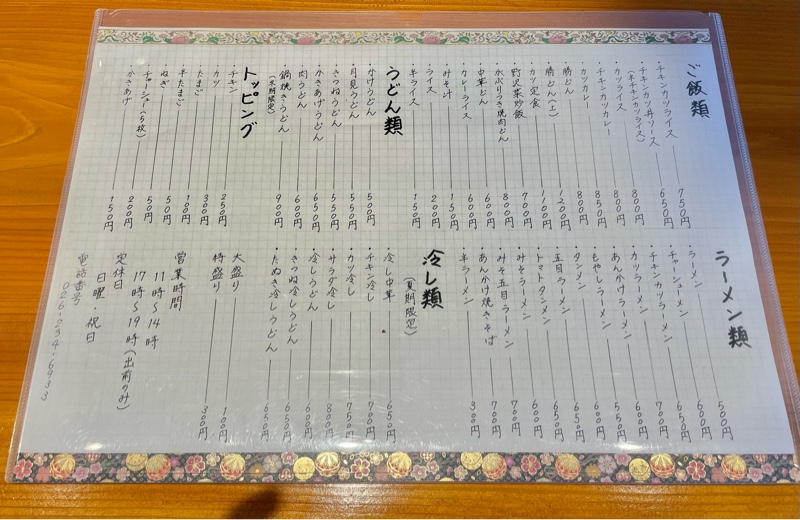 ご飯類
・チキンカツライス 750円
・チキンカツ丼ソース 650円
・カツライス 800円
・チキンカツカレー 850円
・カツカレー 800円
・勝どん
・勝どん(上)
・カツ定食
・野沢菜炒飯
・中華どん 600円
・カレーライス 600円
・みそ汁 150円
・ライス 200円
・半ライス 150円
うどん類
・かけうどん 500円
・月見うどん 550円
・きつねうどん 550円
・かきあげうどん 650円
・肉うどん 600円
・鍋焼きうどん 900円
(冬期限定)
トッピング
チキン 250円
・カツ 300円
・たまご
・半たまご 100円
・ねぎ 50円
・チャーシュー(5枚) 200円
・かきあげ 150円
ラーメン類
・ラーメン 500円
・チャーシューメン 600円
・チキンカツラーメン 650円
・カツラーメン 700円
・あんかけラーメン 600円
・もやしラーメン 550円
・タンメン 600円
・五目ラーメン 650円
・トマトタンメン 650円
・みそラーメン 600円
・みそ五目ラーメン 700円
・あんかけ焼きそば 700円
・半ラーメン 300円
冷し類
(夏期限定)
・冷し中華 650円
・チキン冷し 700円
・カツ冷し 750円
・サラダ冷し 800円
・冷しうどん 600円
・きつね冷しうどん 650円
・たぬき冷しうどん 650円
大盛り 100円
特盛り 300円
営業時間
11時〜14時
17時〜19時(出前のみ)
定休日
日曜・祝日
電話番号
026-234-6933